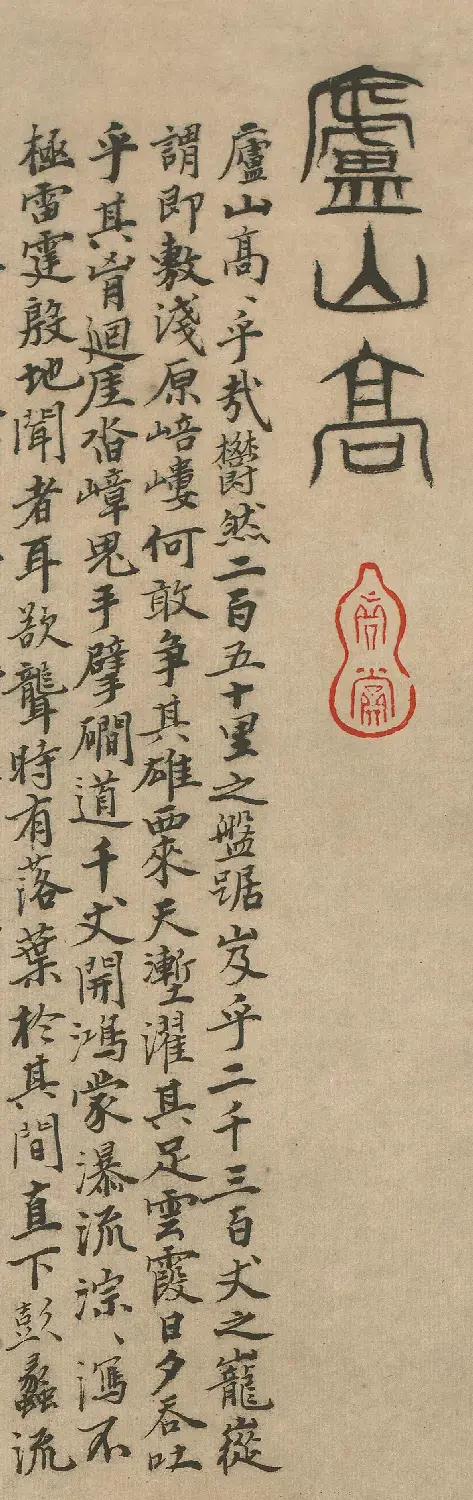 廬山高
廬山高、乎哉欎然二百五十里之盤踞岌乎二千三百丈之巃嵸
謂即敷淺原㟝嶁何敢争其雄西來天塹濯其足雲霞日夕吞吐
乎其胷迴厓沓嶂鬼手擘磵道千丈開鴻蒙瀑流淙、瀉不
極雷霆殷地聞者耳欲聾時有落葉於其間直下彭蠡流